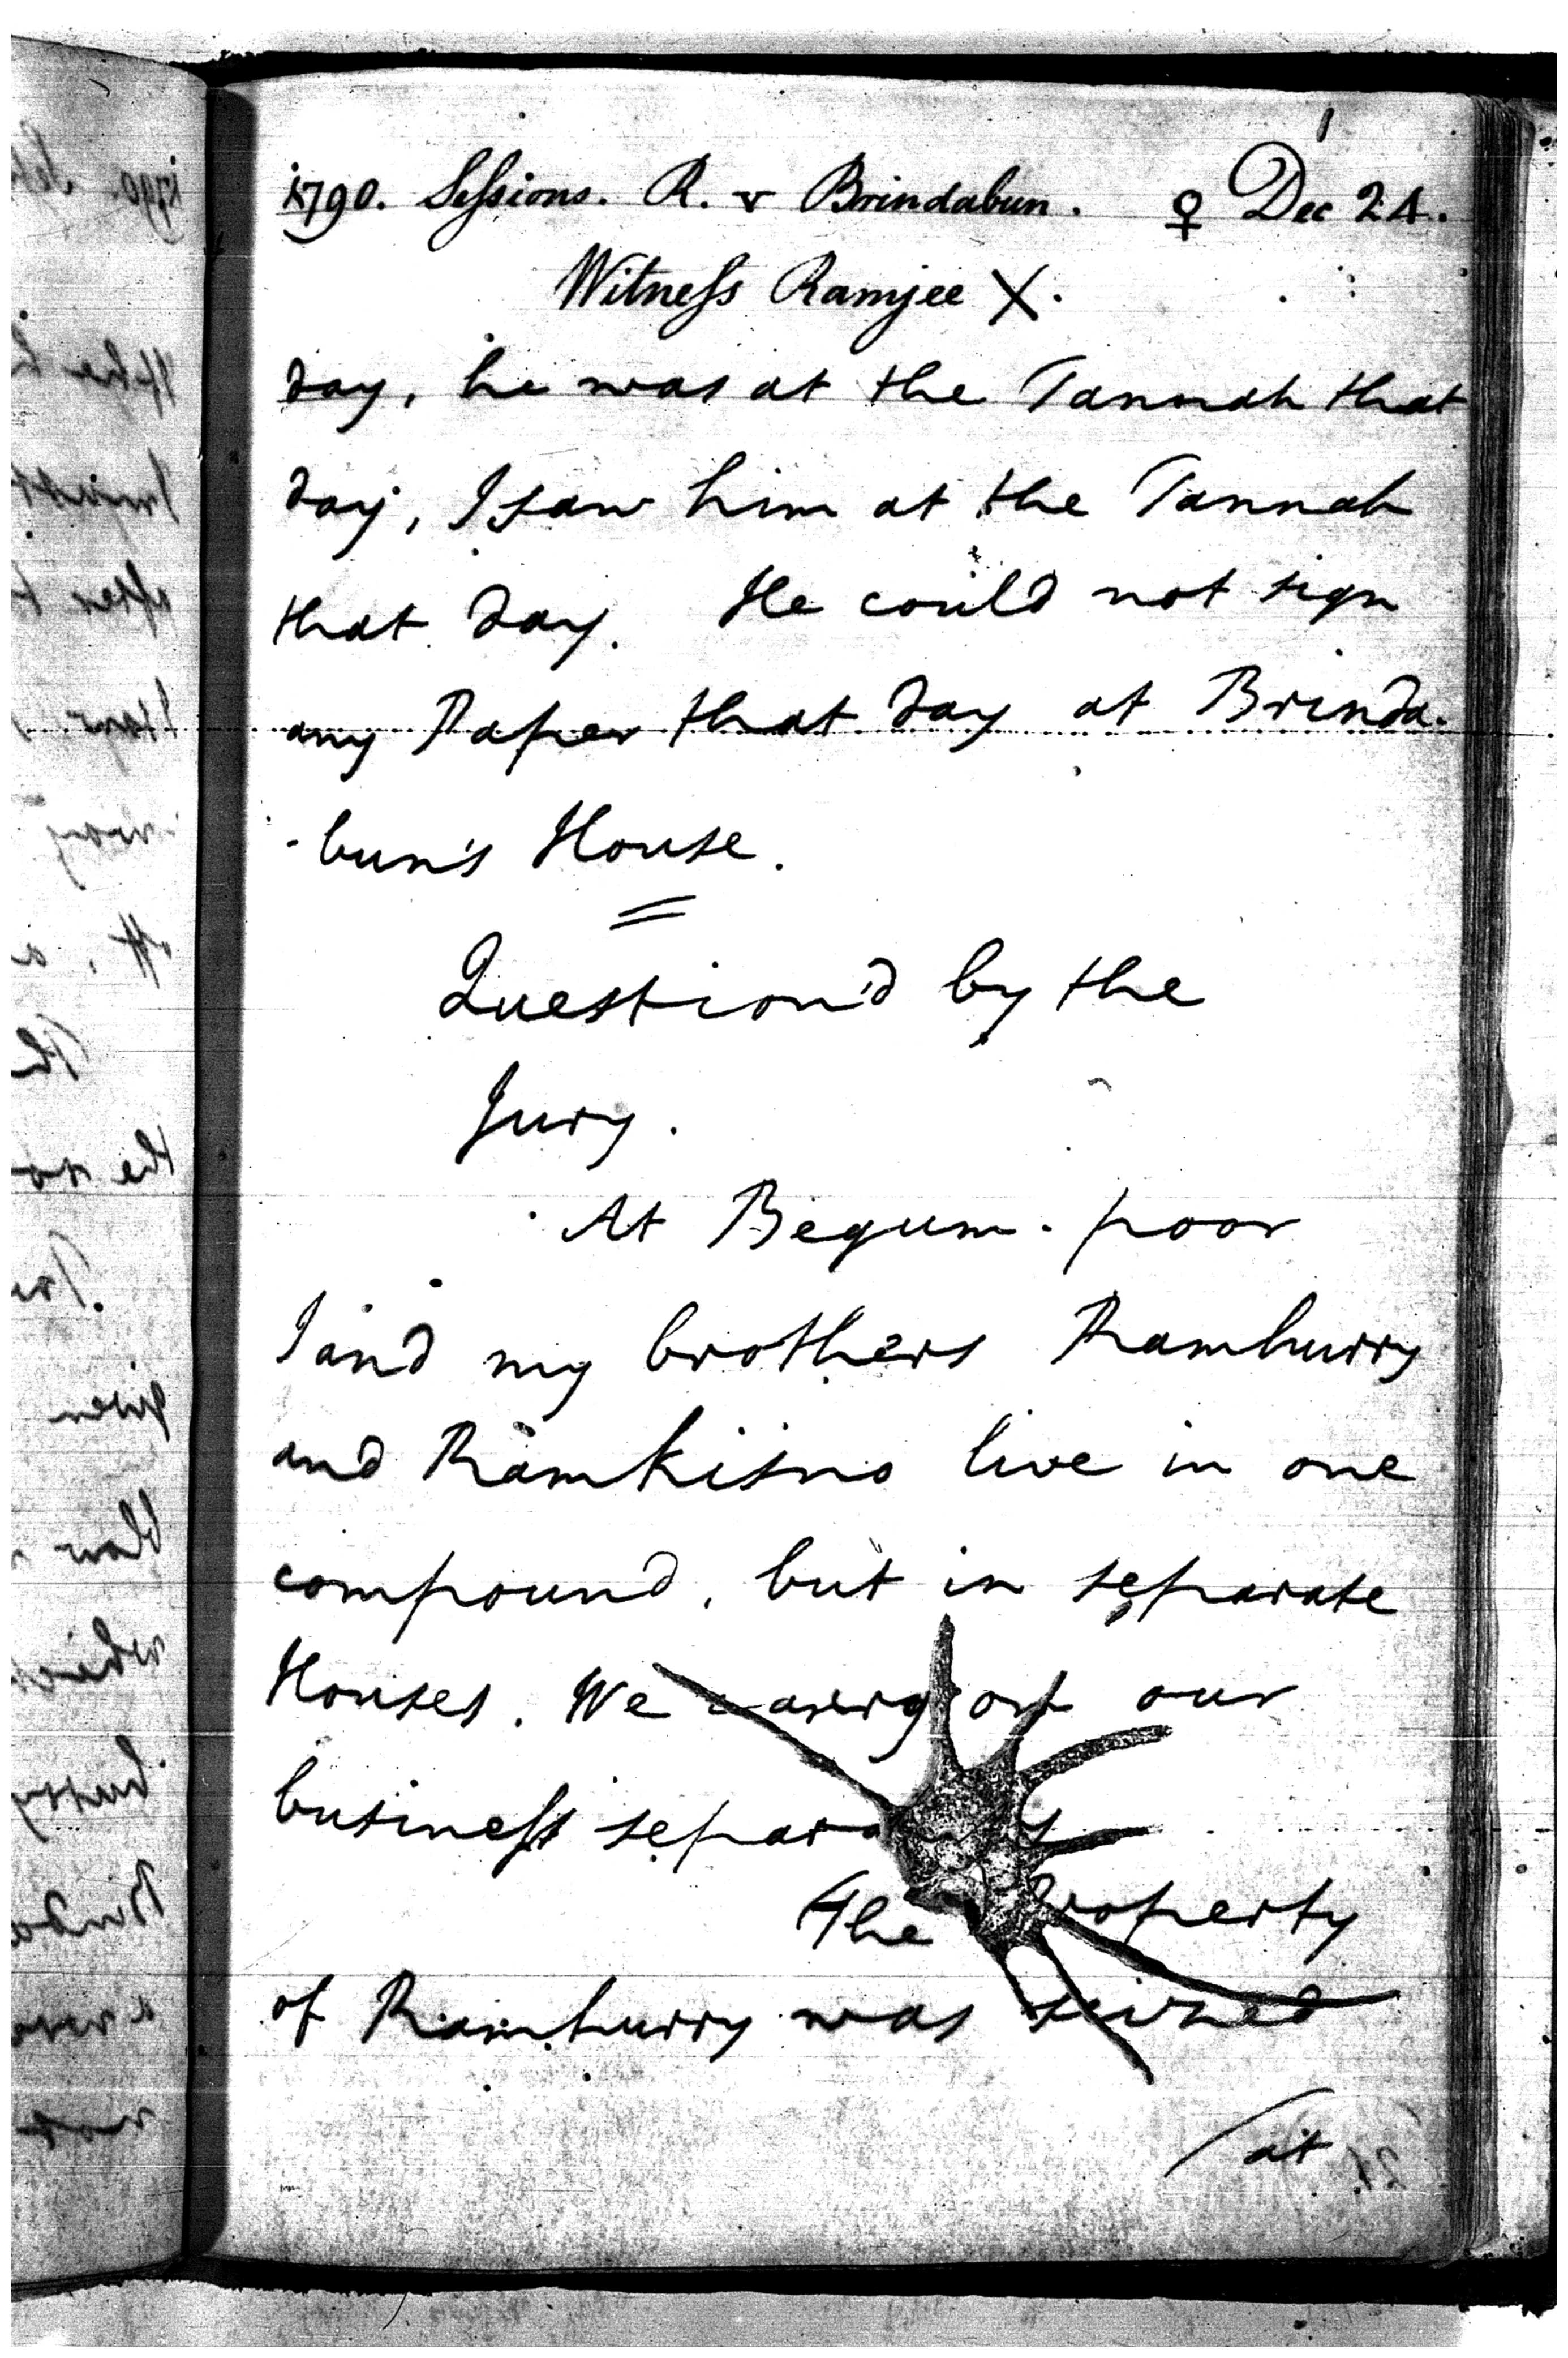 1790. Sessions. R. v Brindabun. ♀ Dec 24.
Witness Ramjee X.
day, he was at the Tannah that
day, I saw him at the Tannah
that day. He could not sign
any Paper that day at Brinda-
-bun's House.
Question'd by the
Jury.
At Begum-poor
I and my brothers Ramhurry
and Ramkisno live in one
compound, but in separate
Houses. We carry on our
business
The Property
of Ramhurry was seized
at